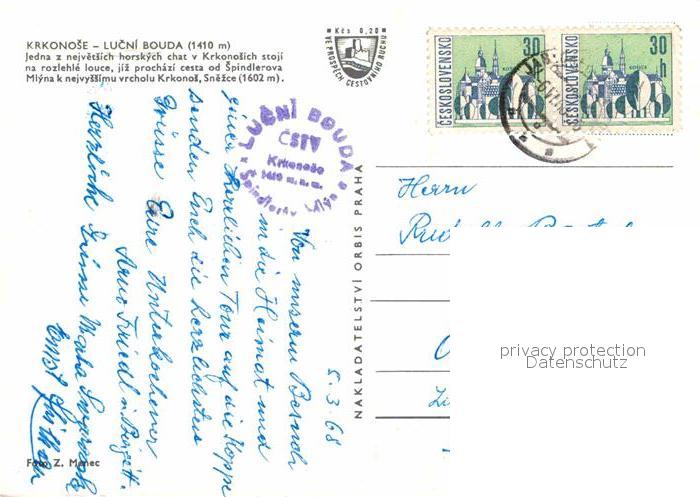 KRKONOŠE – LUČNÍ BOUDA (1410 m)
Jedna z největších horských chat v Krkonoších stojí
na rozlehlé louce, jíž prochází cesta od Špindlerova
Mlýna k nejvyššímu vrcholu Krkonoš, Sněžce (1602 m).
Kčs 0,20
VE PROSPĚCH CESTOVNÍHO RUCHU
ČESKOSLOVENSKO 30 h
ČESKOSLOVENSKO 30 h
LUČNÍ BOUDA
ČSTV
Krkonoše
1410 m. n. m.
Špindlerův Mlýn
5.3.68
Von unserem Besuch
in die Heimat und
einer herrlichen Tour auf die Koppe
senden Euch die herzlichsten
Grüsse Eure Unterkochener
Arno Friedl u. Brigitt.
Herzliche Grüsse Maria
Ernst
NAKLADATELSTVÍ ORBIS PRAHA
Herrn
Foto Z. Menec
privacy protection
Datenschutz